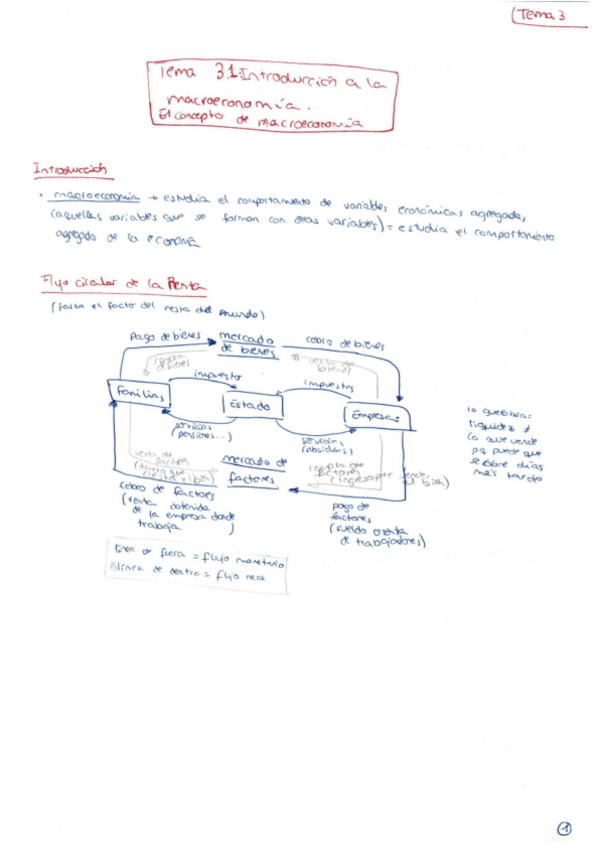 Tema 3
Tema 3.1: Introducción a la
macroeconomía.
El concepto de macroeconomía
Introducción
• macroeconomía → estudia el comportamiento de variables económicas agregadas,
(aquellas variables que se forman con otras variables) = estudia el comportamiento
agregado de la economía
Flujo circular de la Renta
(falta el factor del resto del mundo)
pago de bienes
mercado
de bienes
cobro de bienes
compra
de bienes
venta de
bienes
impuestos
impuestos
Familias
Estado
Empresas
servicios
(pensiones...)
servicios
(subsidios)
lo que
liquidez ≠
lo que vende
pq puede que
se cobre días
más tarde
venta de
factores
mercado de
factores
compra de
factores
cobro de factores
(renta obtenida
de la empresa donde
trabaja )
pago de
factores
(sueldo
de trabajadores)
línea de fuera = flujo monetario
línea de dentro = flujo real
1